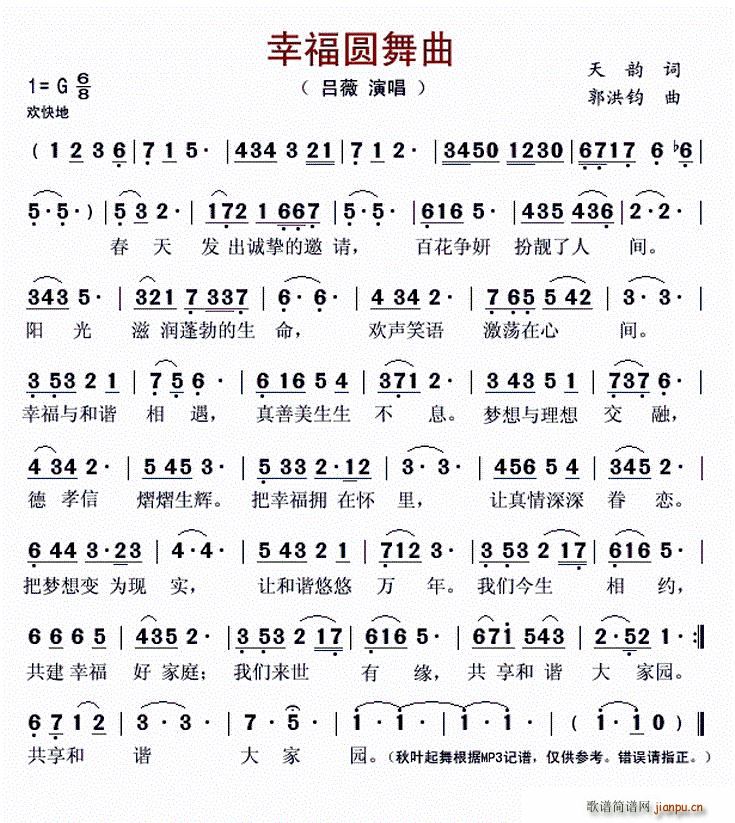 幸福圆舞曲
1= G 6/8 （ 吕薇 演唱 ） 天 韵 词
欢快地 郭洪钧 曲
( 1 2 3 6 | 7 1 5 · | 434 3 21 | 7 1 2 · | 3450 1230 | 6717 6 ♭6 |
5 · 5 · ) | 5 3 2 · | 172 1 667 | 5 · 5 · | 6165 · | 435 436 | 2 · 2 · |
春 天 发 出诚挚的邀 请， 百花争妍 扮靓了人 间。
343 5 · | 321 7 337 | 6 · 6 · | 4 34 2 · | 7 65 5 42 | 3 · 3 · |
阳 光 滋 润蓬勃的生 命， 欢声笑语 激荡在心 间。
3 53 2 1 | 7 5 6 · | 6 16 5 4 | 371 2 · | 3 43 5 1 | 737 6 · |
幸福与和谐 相 遇， 真善美生生 不 息。 梦想与理想 交 融，
4 34 2 · | 5 45 3 · | 5 33 2 · 12 | 3 · 3 · | 456 5 4 | 345 2 · |
德 孝信 熠熠生辉。 把幸福拥 在怀 里， 让真情深深 眷 恋。
6 44 3 · 23 | 4 · 4 · | 5 43 2 1 | 712 3 · | 3 53 2 17 | 616 5 · |
把梦想变 为现 实， 让和谐悠悠 万 年。 我们今生 相 约，
6 6 6 5 | 435 2 · | 3 53 2 17 | 616 5 · | 671 543 | 2 · 52 1 · :||
共建 幸福 好 家庭； 我们来世 有 缘， 共 享和 谐 大 家园。
6 7 1 2 | 3 · 3 · | 7 · 2 · | 1 · 1 · | 1 · 1 · | ( 1 · 1 0 ) ||
共享和 谐 大 家 园。（秋叶起舞根据MP3记谱，仅供参考。错误请指正。）
歌谱简谱网
jianpu.cn